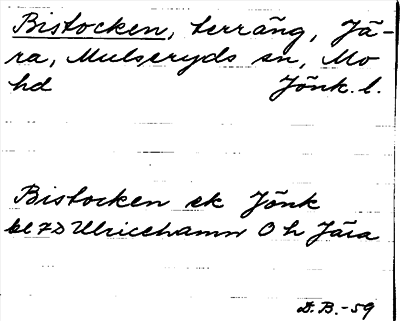 Bistocken, terräng, Jä-
ra, Mulseryds sn, Mo
hd Jönk. l.
Bistocken ek Jönk
bl 7D Ulricehamn O h Jära
D.B.-59